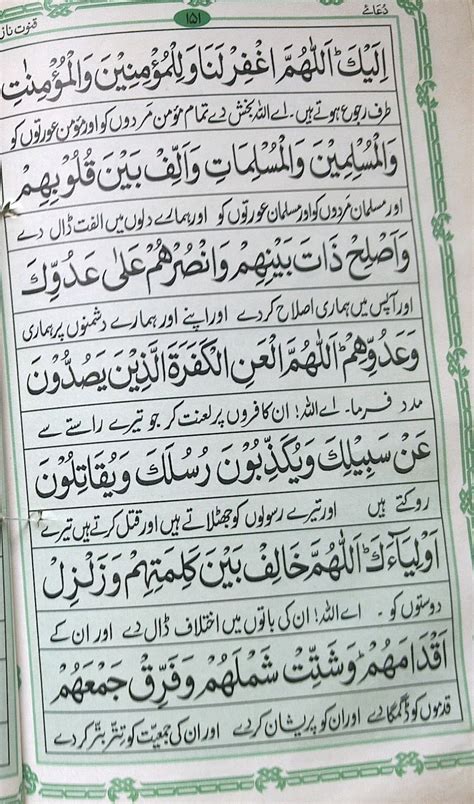 دُعائے ۱۵۱ قنوت نازلہ
اِلَيْكَ اَللّٰهُمَّ اغْفِرْ لَنَا وَلِلْمُؤْمِنِيْنَ وَالْمُؤْمِنٰتِ
طرف رجوع ہوتے ہیں۔ اے اللہ بخش دے تمام مؤمن مَردوں کو اور مؤمن عورتوں کو
وَالْمُسْلِمِيْنَ وَالْمُسْلِمَاتِ وَاَلِّفْ بَيْنَ قُلُوْبِهِمْ
اور مسلمان مَردوں کو اور مسلمان عورتوں کو اور ہمارے دلوں میں الفت ڈال دے
وَاَصْلِحْ ذَاتَ بَيْنِهِمْ وَانْصُرْهُمْ عَلٰى عَدُوِّكَ
اور آپس میں ہماری اصلاح کر دے اور اپنے اور ہمارے دشمنوں پر ہماری
وَعَدُوِّهِمْ اَللّٰهُمَّ الْعَنِ الْكَفَرَةَ الَّذِيْنَ يَصُدُّوْنَ
مدد فرما۔ اے اللہ! ان کافروں پر لعنت کر جو تیرے راستے سے
عَنْ سَبِيْلِكَ وَيُكَذِّبُوْنَ رُسُلَكَ وَيُقَاتِلُوْنَ
روکتے ہیں اور تیرے رسولوں کو جھٹلاتے ہیں اور قتل کرتے ہیں تیرے
اَوْلِيَآءَكَ اَللّٰهُمَّ خَالِفْ بَيْنَ كَلِمَتِهِمْ وَزَلْزِلْ
دوستوں کو ۔ اے اللہ! ان کی باتوں میں اختلاف ڈال دے اور ان کے
اَقْدَامَهُمْ وَشَتِّتْ شَمْلَهُمْ وَفَرِّقْ جَمْعَهُمْ
قدموں کو ڈگمگا دے اور ان کو پریشان کر دے اور ان کی جمعیت کو تِتّر بِتّر کر دے